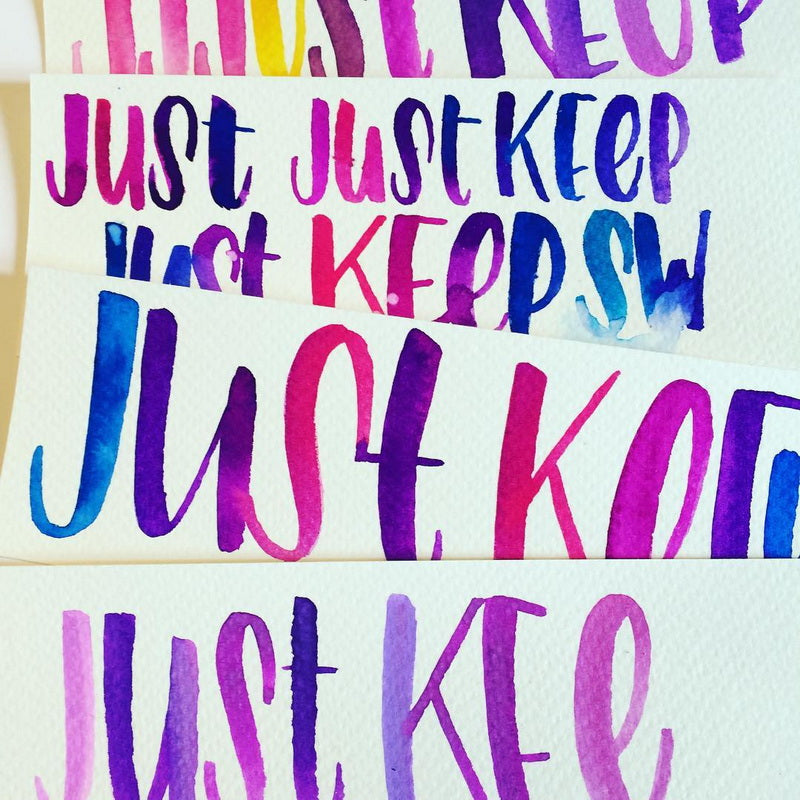 Just KEeP
Just Just KEeP
Just KEeP SW
Just Ke
Just KEe